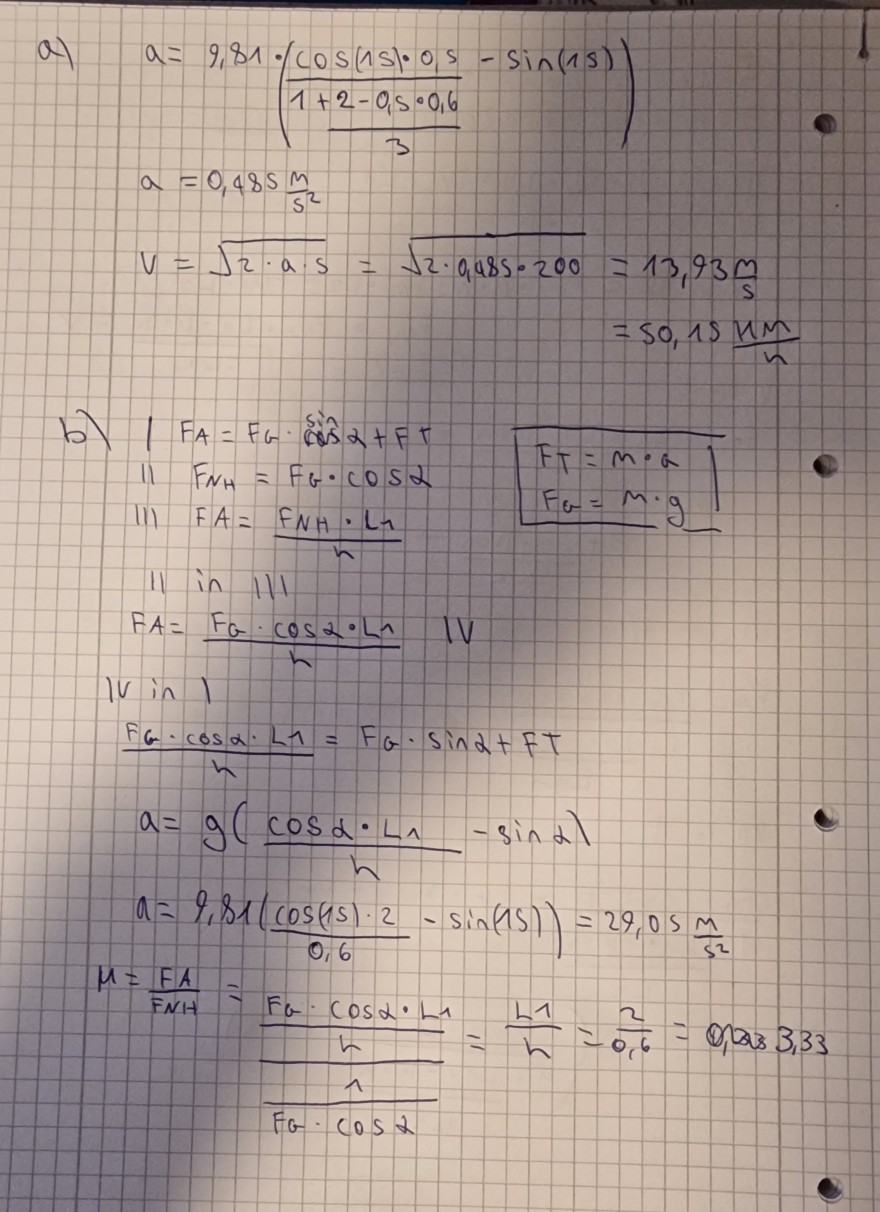 a) a = 9,81 · ( (cos(15) · 0,5) / ((1 + 2 - 0,5 · 0,6) / 3) - sin(15) )
a = 0,485 m/s²
V = √(2 · a · s) = √(2 · 0,485 · 200) = 13,93 m/s
= 50,15 km/h
b) I FA = FG · sin α + FT
FT = m · a
II FNH = FG · cos α
FG = m · g
III FA = (FNH · L1) / h
II in III
FA = (FG · cos α · L1) / h IV
IV in I
(FG · cos α · L1) / h = FG · sin α + FT
a = g( (cos α · L1) / h - sin α)
a = 9,81( (cos(15) · 2) / 0,6 - sin(15)) = 29,05 m/s²
μ = FA / FNH = ((FG · cos α · L1) / h) / (1 / (FG · cos α)) = L1 / h = 2 / 0,6 = 3,33